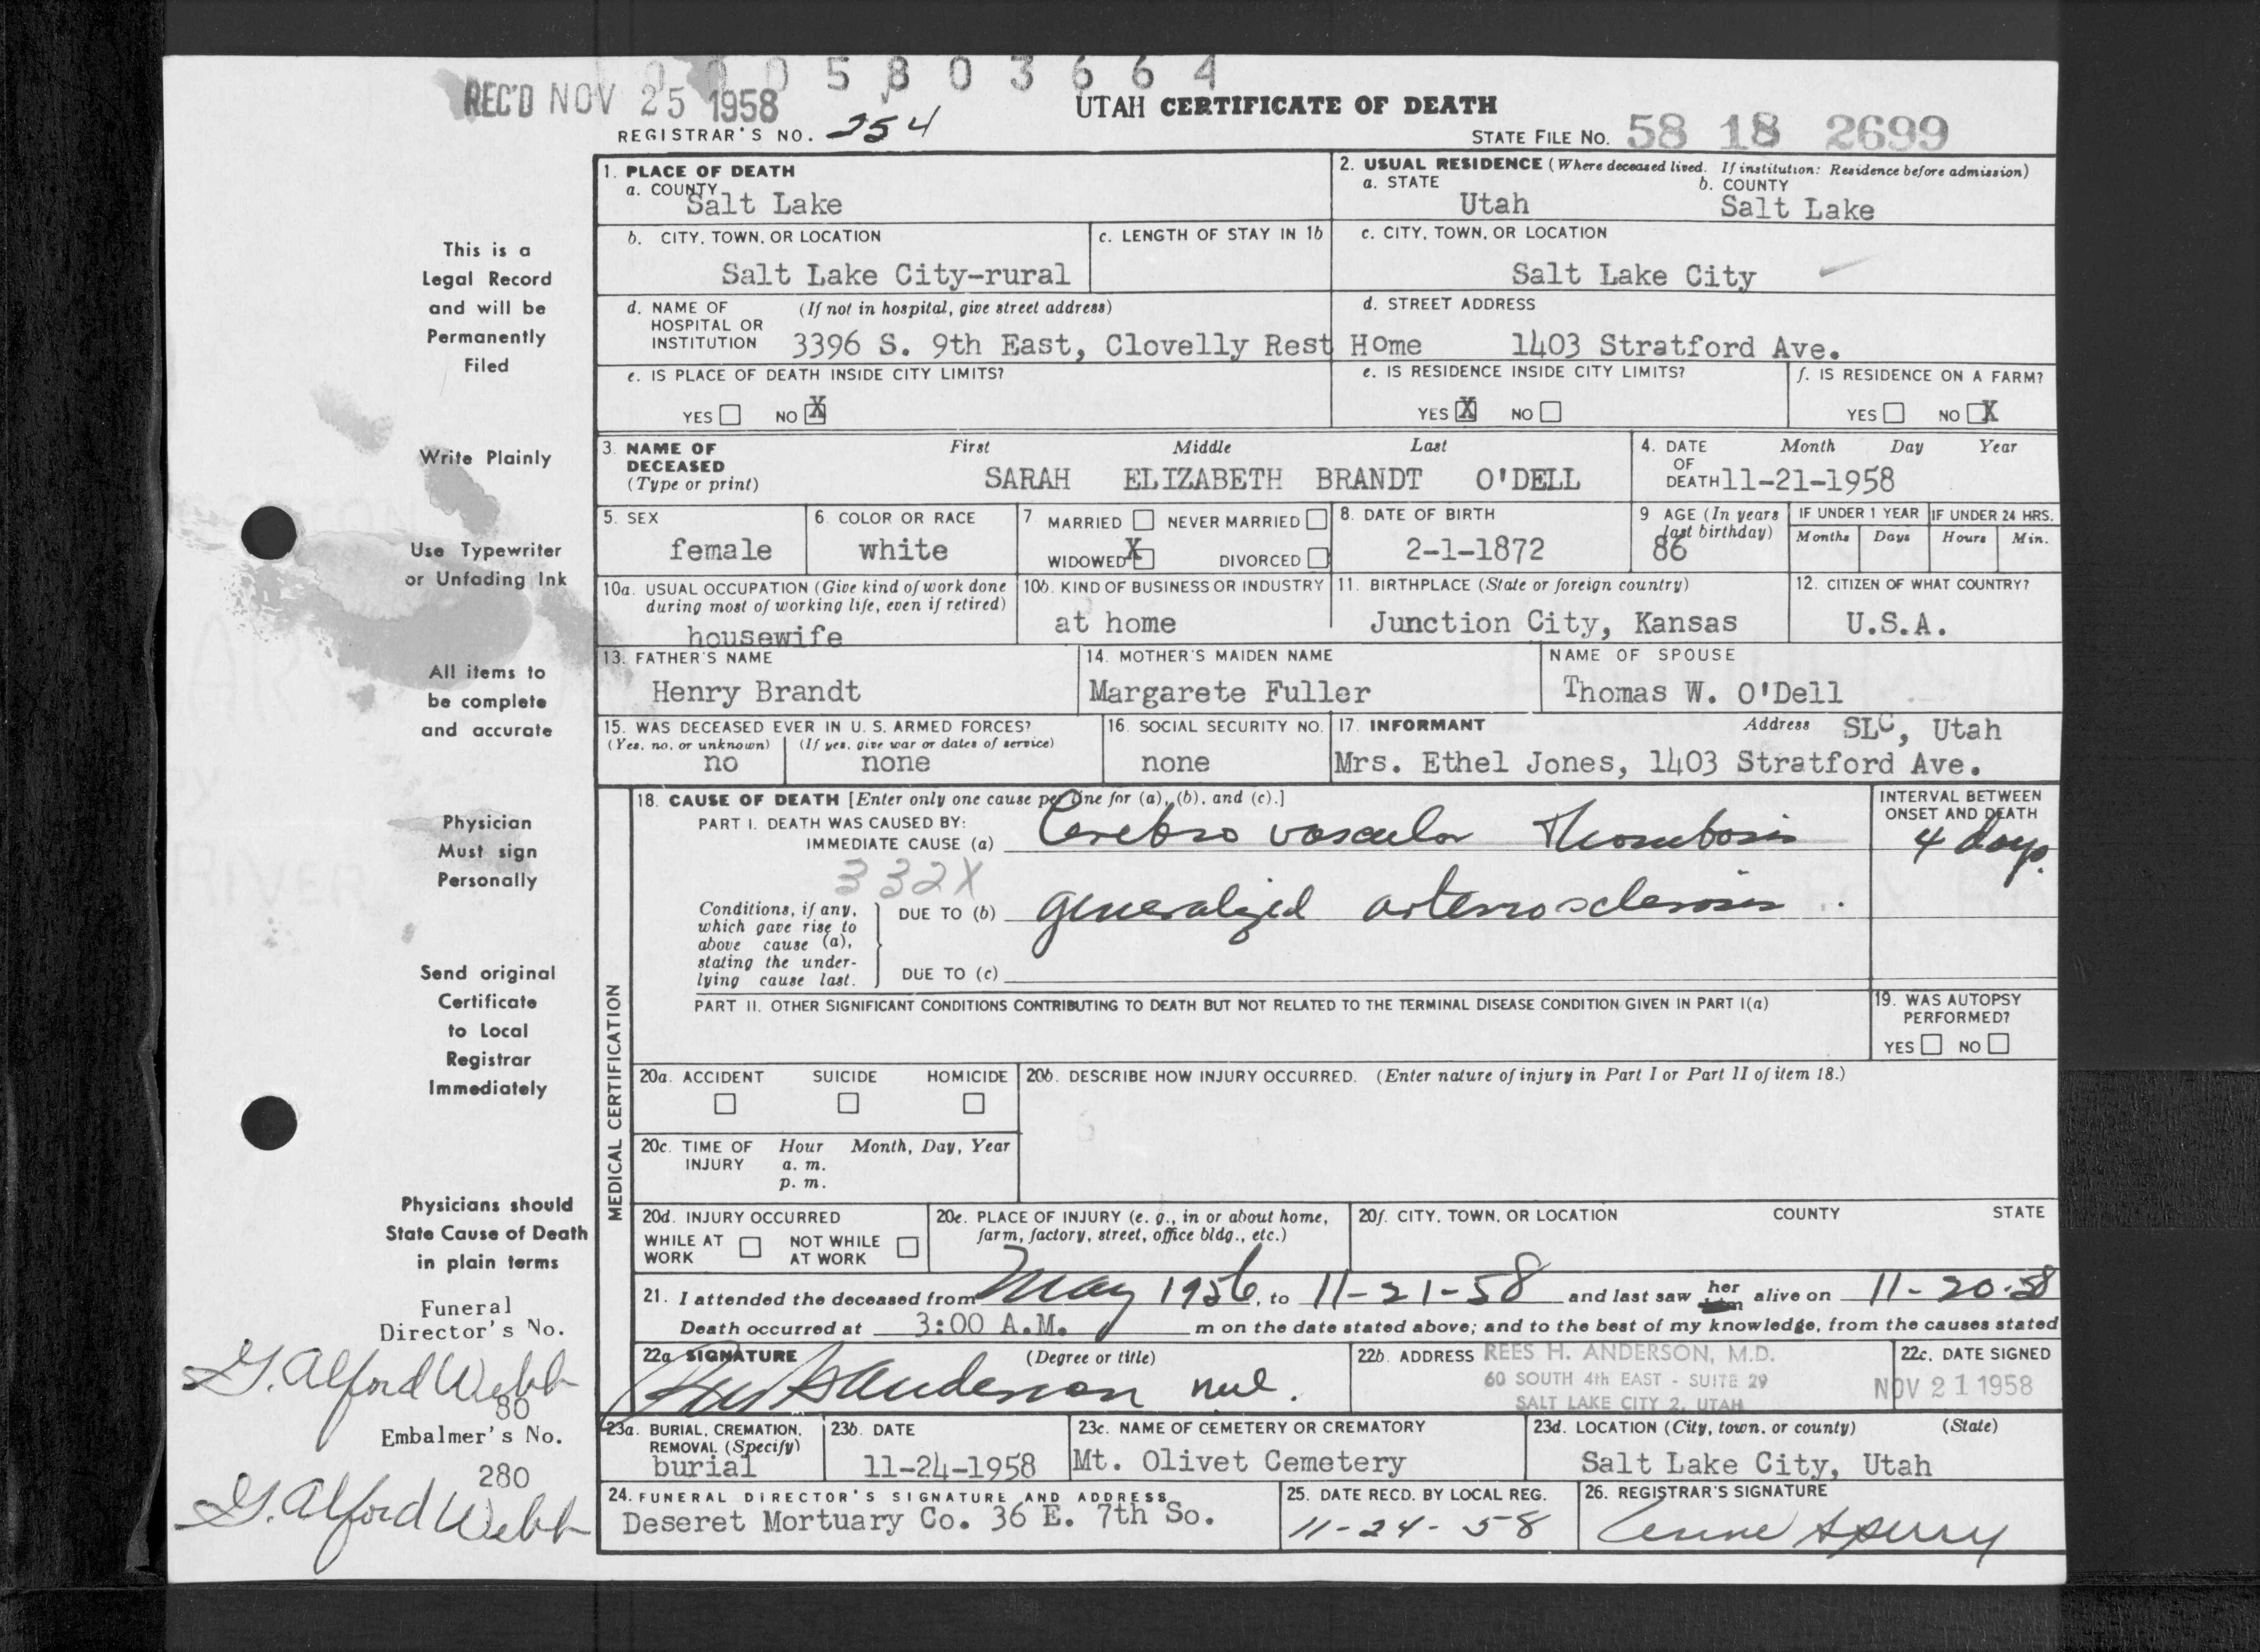 0 0 0 5 8 0 3 6 6 4
REC'D NOV 25 1958
UTAH CERTIFICATE OF DEATH
REGISTRAR'S NO. 254
STATE FILE NO. 58 18 2699
1. PLACE OF DEATH
a. COUNTY
Salt Lake
2. USUAL RESIDENCE (Where deceased lived. If institution: Residence before admission)
a. STATE b. COUNTY
Utah Salt Lake
b. CITY, TOWN, OR LOCATION c. LENGTH OF STAY IN 1b
Salt Lake City-rural
c. CITY, TOWN, OR LOCATION
Salt Lake City
d. NAME OF (If not in hospital, give street address)
HOSPITAL OR
INSTITUTION 3396 S. 9th East, Clovelly Rest Home
d. STREET ADDRESS
1403 Stratford Ave.
e. IS PLACE OF DEATH INSIDE CITY LIMITS?
YES NO X
e. IS RESIDENCE INSIDE CITY LIMITS?
YES X NO
f. IS RESIDENCE ON A FARM?
YES NO X
3. NAME OF First Middle Last
DECEASED
(Type or print) SARAH ELIZABETH BRANDT O'DELL
4. DATE Month Day Year
OF
DEATH 11-21-1958
5. SEX
female
6. COLOR OR RACE
white
7 MARRIED NEVER MARRIED
WIDOWED X DIVORCED
8. DATE OF BIRTH
2-1-1872
9 AGE (In years
last birthday)
86
IF UNDER 1 YEAR IF UNDER 24 HRS.
Months Days Hours Min.
10a. USUAL OCCUPATION (Give kind of work done
during most of working life, even if retired)
housewife
10b. KIND OF BUSINESS OR INDUSTRY
at home
11. BIRTHPLACE (State or foreign country)
Junction City, Kansas
12. CITIZEN OF WHAT COUNTRY?
U.S.A.
13. FATHER'S NAME
Henry Brandt
14. MOTHER'S MAIDEN NAME
Margarete Fuller
NAME OF SPOUSE
Thomas W. O'Dell
15. WAS DECEASED EVER IN U. S. ARMED FORCES?
(Yes, no, or unknown) (If yes, give war or dates of service)
no none
16. SOCIAL SECURITY NO.
none
17. INFORMANT Address SLC, Utah
Mrs. Ethel Jones, 1403 Stratford Ave.
MEDICAL CERTIFICATION
18. CAUSE OF DEATH [Enter only one cause per line for (a), (b), and (c).]
PART I. DEATH WAS CAUSED BY:
IMMEDIATE CAUSE (a) Cerebro vascular Thrombosis
INTERVAL BETWEEN
ONSET AND DEATH
4 days
332X
Conditions, if any,
which gave rise to
above cause (a),
stating the under-
lying cause last.
DUE TO (b) generalized arteriosclerosis
DUE TO (c)
PART II. OTHER SIGNIFICANT CONDITIONS CONTRIBUTING TO DEATH BUT NOT RELATED TO THE TERMINAL DISEASE CONDITION GIVEN IN PART I(a)
19. WAS AUTOPSY
PERFORMED?
YES NO
20a. ACCIDENT SUICIDE HOMICIDE
20b. DESCRIBE HOW INJURY OCCURRED. (Enter nature of injury in Part I or Part II of item 18.)
20c. TIME OF Hour Month, Day, Year
INJURY a. m.
p. m.
20d. INJURY OCCURRED
WHILE AT NOT WHILE
WORK AT WORK
20e. PLACE OF INJURY (e. g., in or about home,
farm, factory, street, office bldg., etc.)
20f. CITY, TOWN, OR LOCATION COUNTY STATE
21. I attended the deceased from May 1956, to 11-21-58 and last saw her him alive on 11-20-58
Death occurred at 3:00 A.M. m on the date stated above; and to the best of my knowledge, from the causes stated
22a SIGNATURE (Degree or title)
Rees H Anderson
22b. ADDRESS REES H. ANDERSON, M.D.
60 SOUTH 4th EAST - SUITE 29
SALT LAKE CITY 2, UTAH
22c. DATE SIGNED
NOV 21 1958
23a. BURIAL, CREMATION,
REMOVAL (Specify)
burial
23b. DATE
11-24-1958
23c. NAME OF CEMETERY OR CREMATORY
Mt. Olivet Cemetery
23d. LOCATION (City, town, or county) (State)
Salt Lake City, Utah
24. FUNERAL DIRECTOR'S SIGNATURE AND ADDRESS
Deseret Mortuary Co. 36 E. 7th So.
25. DATE RECD. BY LOCAL REG.
11-24-58
26. REGISTRAR'S SIGNATURE
Sperry
This is a
Legal Record
and will be
Permanently
Filed
Write Plainly
Use Typewriter
or Unfading Ink
All items to
be complete
and accurate
Physician
Must sign
Personally
Send original
Certificate
to Local
Registrar
Immediately
Physicians should
State Cause of Death
in plain terms
Funeral
Director's No.
G. Alford Webb
80
Embalmer's No.
280
G. Alford Webb